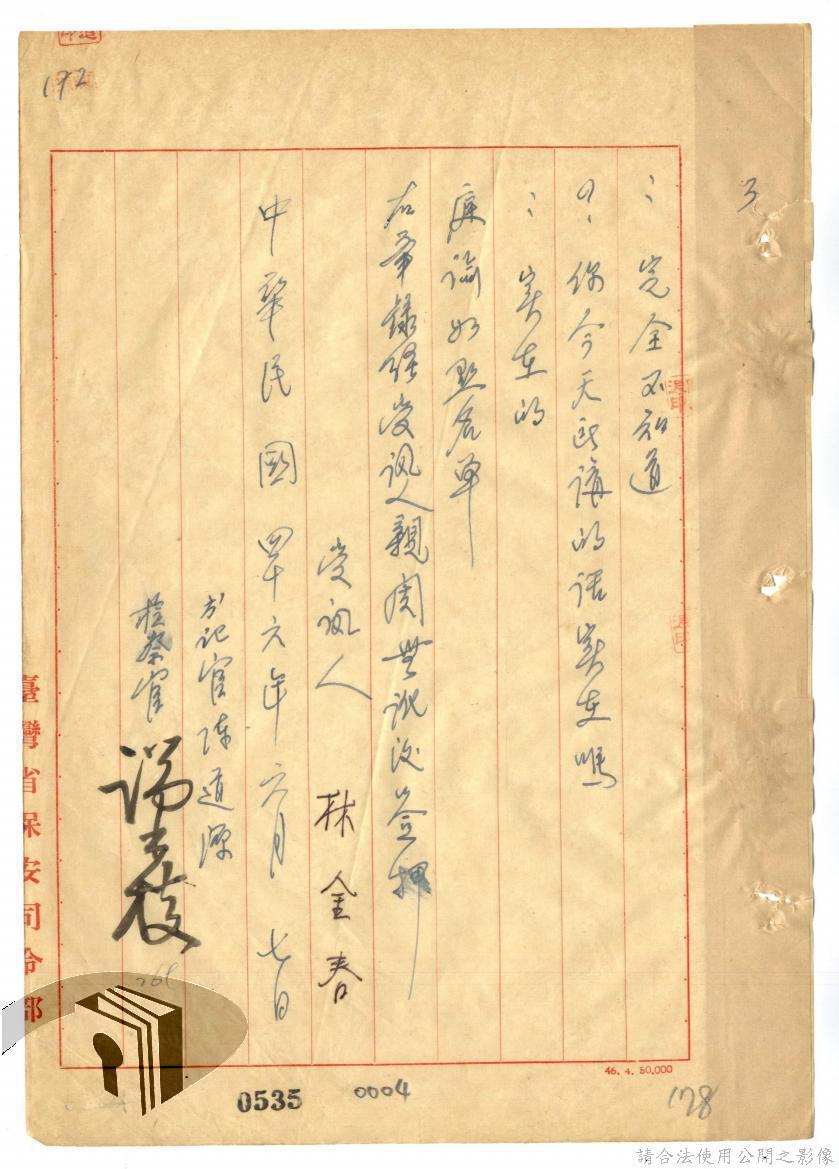 ：完全不知道
？：你今天所講的話實在嗎
：實在的
庭諭如點名單
右筆錄經受訊人親閱無訛後簽押
受訊人 林金春
中華民國四十六年六月七日
書記官陳道源
檢察官
臺灣省保安司令部
192
3
46. 4. 50,000
0535
0004
178
請合法使用公開之影像